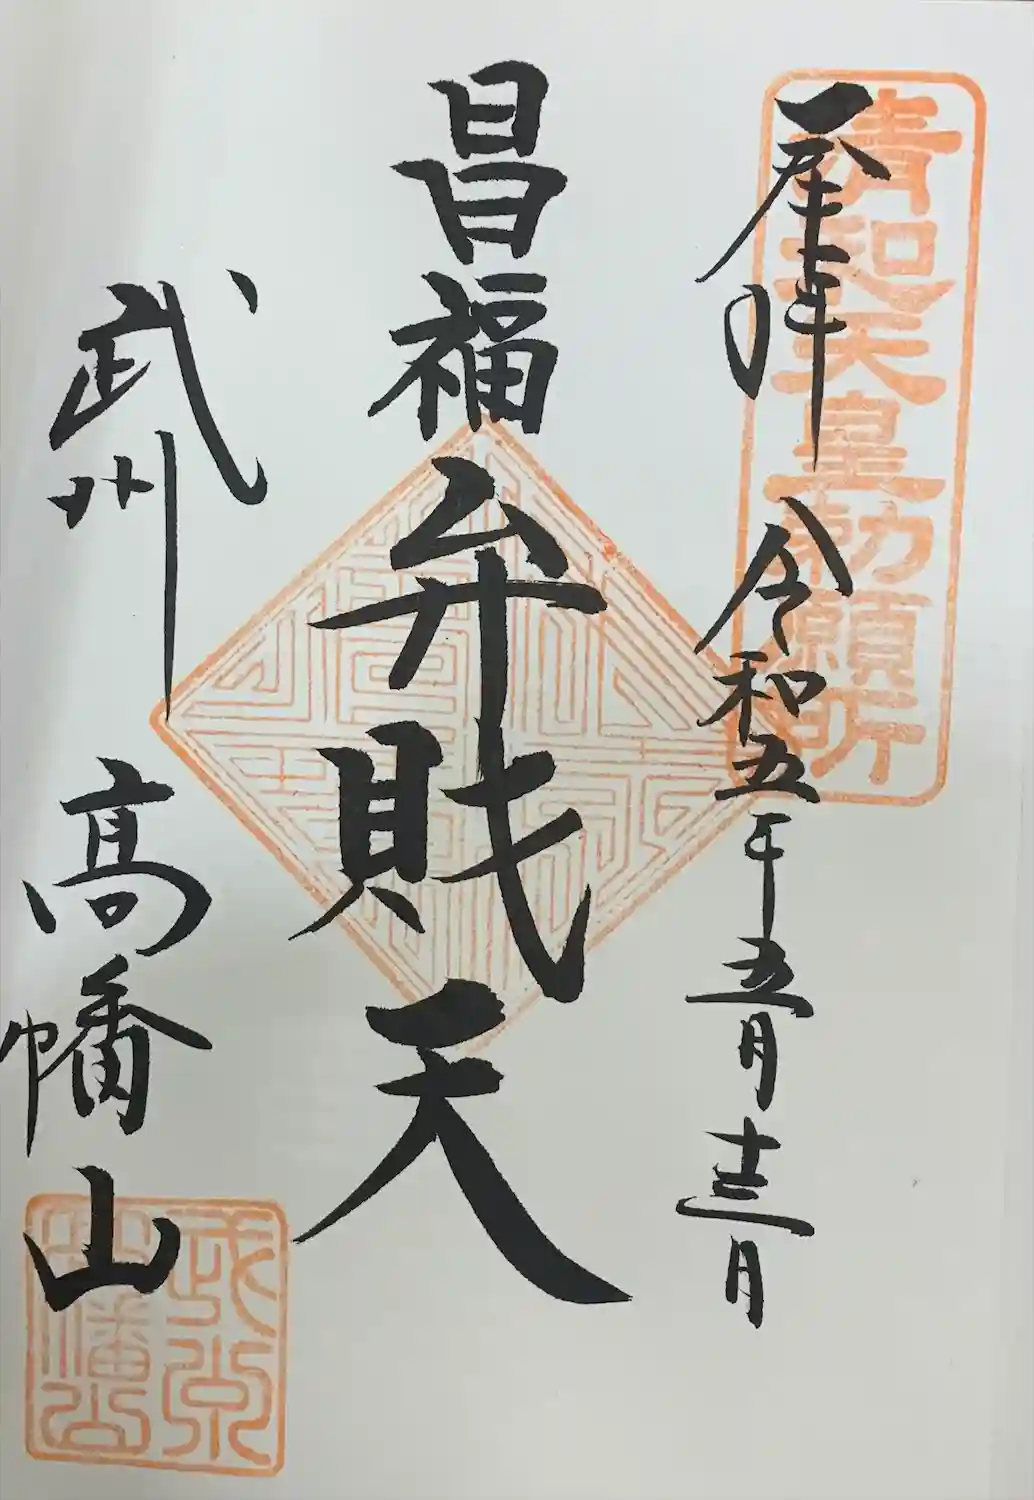 清和天皇勅願所
奉拝 令和五年五月十三日
昌福弁財天
武州 高幡山